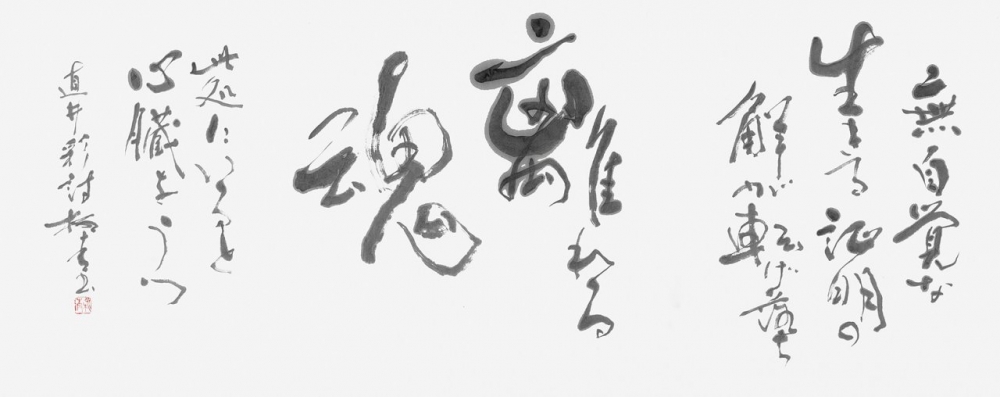 無自覚な
生きる証明の
解が転げ落ち
離れる
魂
此処にいると
心臓をうつ
直井彩詩